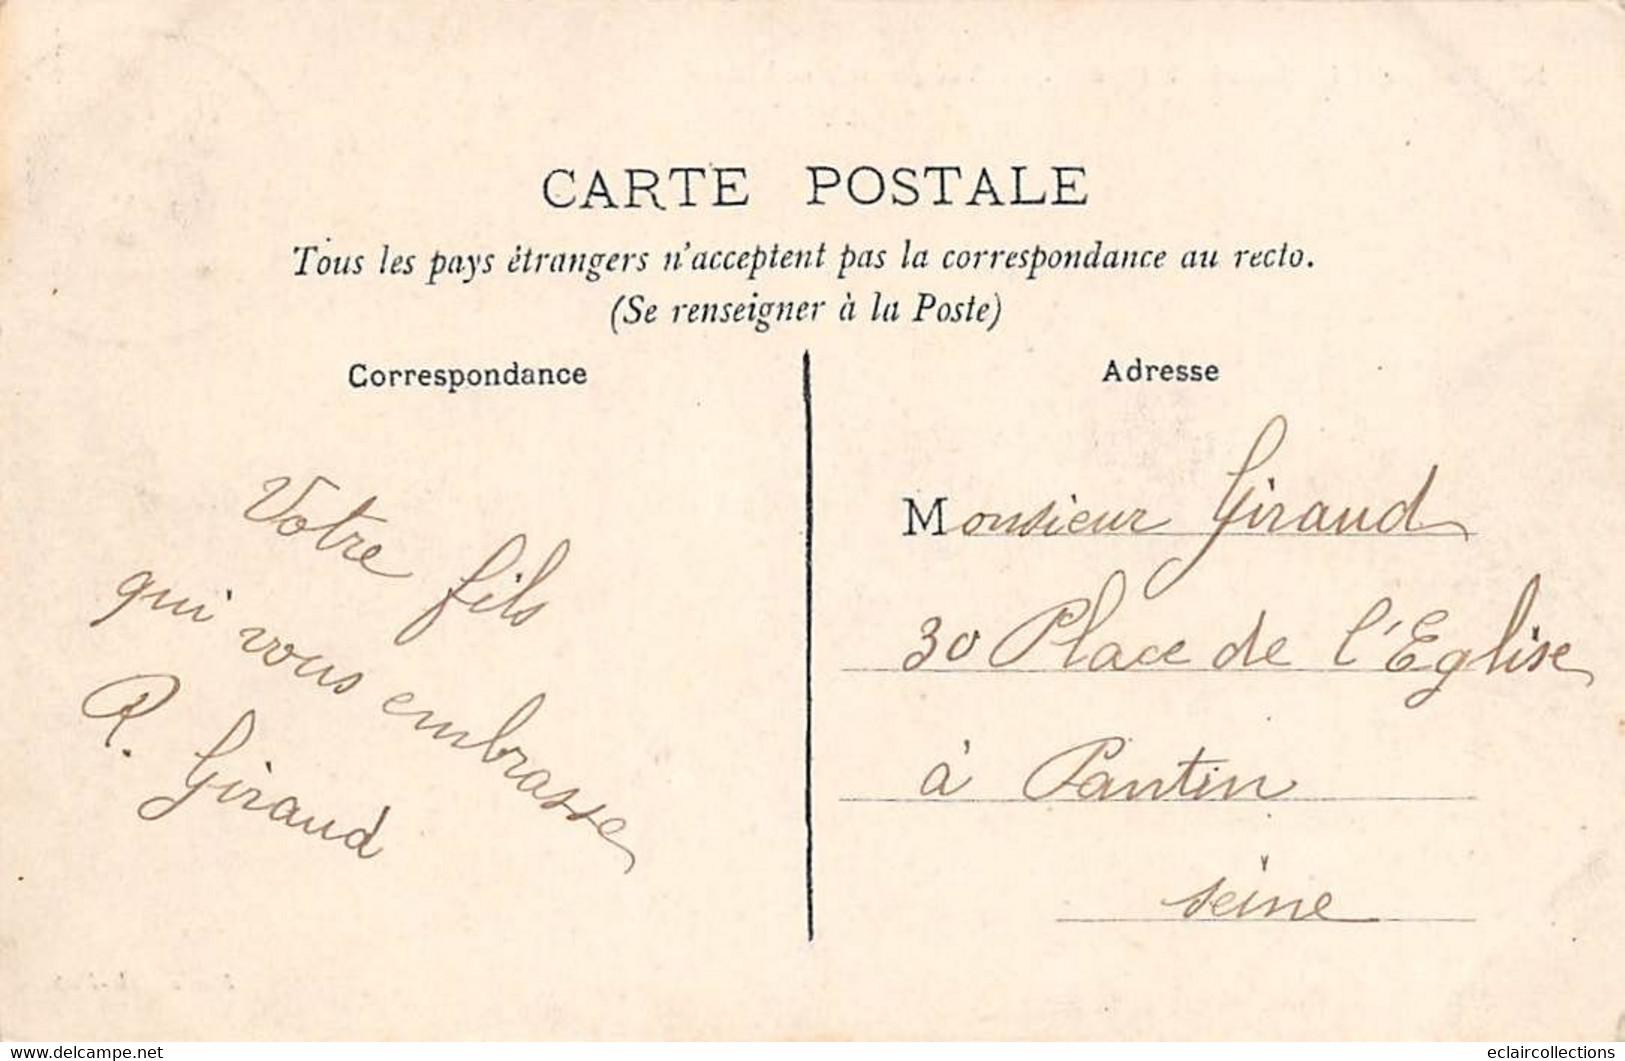 CARTE POSTALE
Tous les pays étrangers n'acceptent pas la correspondance au recto.
(Se renseigner à la Poste)
Correspondance
Votre fils
qui vous embrasse
R. Giraud
Adresse
Monsieur Giraud
30 Place de l'Eglise
à Pantin
seine
www.delcampe.net
eclaircollections